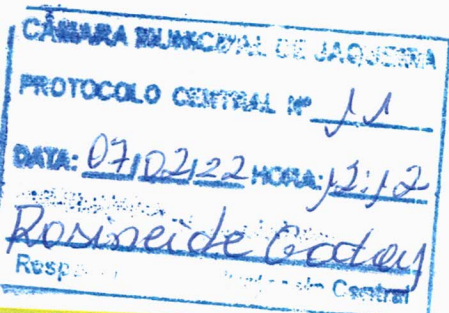 CÂMARA MUNICIPAL DE JAQUEIRA
PROTOCOLO CENTRAL Nº 11
DATA: 07/02/22 HORA: 12:12
Rosineide Godoy
Resp Central